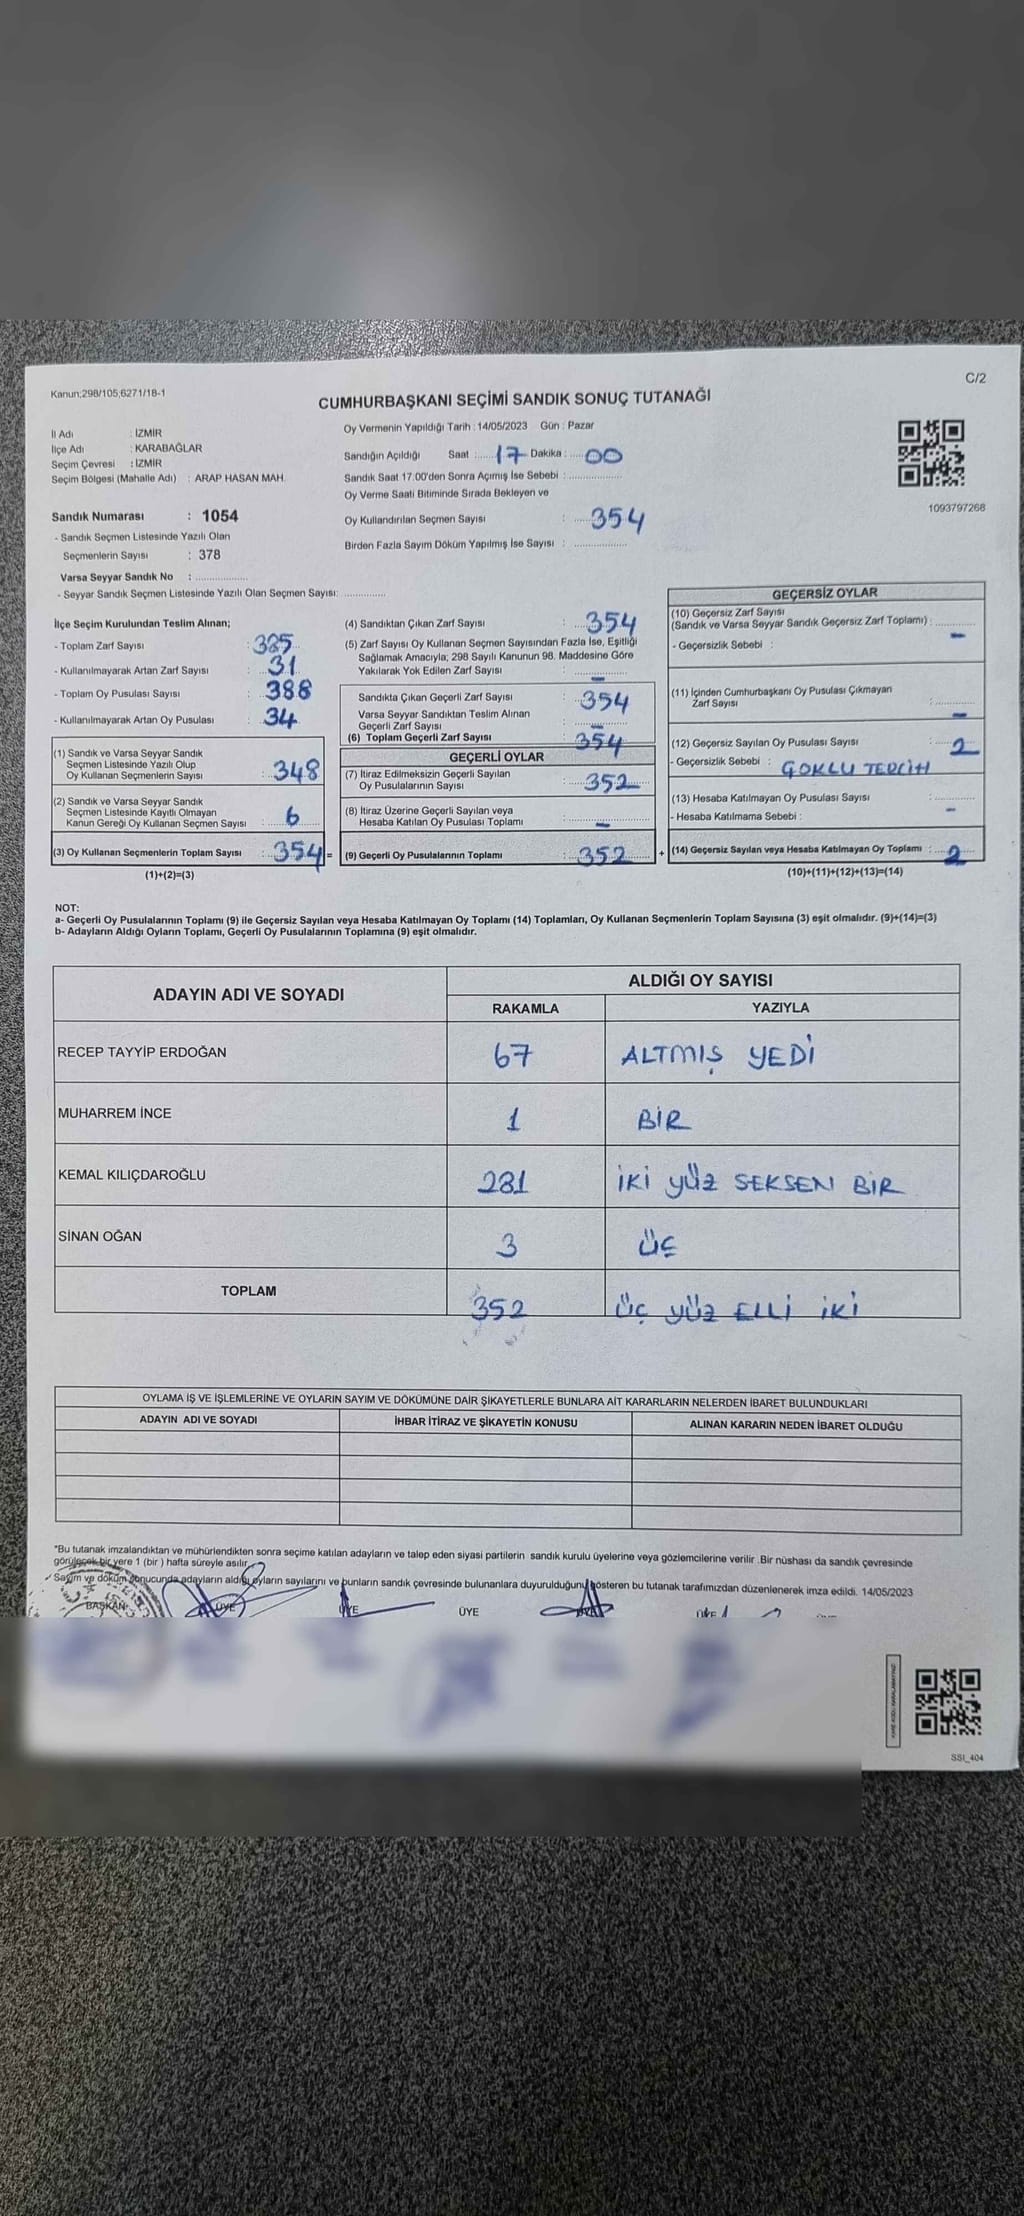 Kanun:298/105,6271/18-1
C/2
CUMHURBAŞKANI SEÇİMİ SANDIK SONUÇ TUTANAĞI
İl Adı : İZMİR
İlçe Adı : KARABAĞLAR
Seçim Çevresi : İZMİR
Seçim Bölgesi (Mahalle Adı) : ARAP HASAN MAH.
Sandık Numarası : 1054
- Sandık Seçmen Listesinde Yazılı Olan
Seçmenlerin Sayısı : 378
Varsa Seyyar Sandık No : ..................
- Seyyar Sandık Seçmen Listesinde Yazılı Olan Seçmen Sayısı: ..............
Oy Vermenin Yapıldığı Tarih : 14/05/2023 Gün : Pazar
Sandığın Açıldığı Saat : 17 Dakika : 00
Sandık Saat 17.00'den Sonra Açımış İse Sebebi : ..................
Oy Verme Saati Bitiminde Sırada Bekleyen ve
Oy Kullandırılan Seçmen Sayısı : 354
Birden Fazla Sayım Döküm Yapılmış İse Sayısı : ..................
1093797268
İlçe Seçim Kurulundan Teslim Alınan;
- Toplam Zarf Sayısı : 385
- Kullanılmayarak Artan Zarf Sayısı : 31
- Toplam Oy Pusulası Sayısı : 388
- Kullanılmayarak Artan Oy Pusulası : 34
(1) Sandık ve Varsa Seyyar Sandık
Seçmen Listesinde Yazılı Olup
Oy Kullanan Seçmenlerin Sayısı : 348
(2) Sandık ve Varsa Seyyar Sandık
Seçmen Listesinde Kayıtlı Olmayan
Kanun Gereği Oy Kullanan Seçmen Sayısı : 6
(3) Oy Kullanan Seçmenlerin Toplam Sayısı : 354 =
(1)+(2)=(3)
(4) Sandıktan Çıkan Zarf Sayısı : 354
(5) Zarf Sayısı Oy Kullanan Seçmen Sayısından Fazla İse, Eşitliği
Sağlamak Amacıyla; 298 Sayılı Kanunun 98. Maddesine Göre
Yakılarak Yok Edilen Zarf Sayısı : –
Sandıkta Çıkan Geçerli Zarf Sayısı : 354
Varsa Seyyar Sandıktan Teslim Alınan
Geçerli Zarf Sayısı : –
(6) Toplam Geçerli Zarf Sayısı 354
GEÇERLİ OYLAR
(7) İtiraz Edilmeksizin Geçerli Sayılan
Oy Pusulalarının Sayısı : 352
(8) İtiraz Üzerine Geçerli Sayılan veya
Hesaba Katılan Oy Pusulası Toplamı : –
(9) Geçerli Oy Pusulalarının Toplamı : 352 +
GEÇERSİZ OYLAR
(10) Geçersiz Zarf Sayısı
(Sandık ve Varsa Seyyar Sandık Geçersiz Zarf Toplamı) : –
- Geçersizlik Sebebi :
(11) İçinden Cumhurbaşkanı Oy Pusulası Çıkmayan
Zarf Sayısı : –
(12) Geçersiz Sayılan Oy Pusulası Sayısı : 2
- Geçersizlik Sebebi : ÇOKLU TERCİH
(13) Hesaba Katılmayan Oy Pusulası Sayısı : –
- Hesaba Katılmama Sebebi :
(14) Geçersiz Sayılan veya Hesaba Katılmayan Oy Toplamı : 2
(10)+(11)+(12)+(13)=(14)
NOT:
a- Geçerli Oy Pusulalarının Toplamı (9) ile Geçersiz Sayılan veya Hesaba Katılmayan Oy Toplamı (14) Toplamları, Oy Kullanan Seçmenlerin Toplam Sayısına (3) eşit olmalıdır. (9)+(14)=(3)
b- Adayların Aldığı Oyların Toplamı, Geçerli Oy Pusulalarının Toplamına (9) eşit olmalıdır.
ADAYIN ADI VE SOYADI ALDIĞI OY SAYISI
RAKAMLA YAZIYLA
RECEP TAYYİP ERDOĞAN 67 ALTMIŞ YEDİ
MUHARREM İNCE 1 BİR
KEMAL KILIÇDAROĞLU 281 İKİ YÜZ SEKSEN BİR
SİNAN OĞAN 3 ÜÇ
TOPLAM 352 ÜÇ YÜZ ELLİ İKİ
OYLAMA İŞ VE İŞLEMLERİNE VE OYLARIN SAYIM VE DÖKÜMÜNE DAİR ŞİKAYETLERLE BUNLARA AİT KARARLARIN NELERDEN İBARET BULUNDUKLARI
ADAYIN ADI VE SOYADI İHBAR İTİRAZ VE ŞİKAYETİN KONUSU ALINAN KARARIN NEDEN İBARET OLDUĞU
*Bu tutanak imzalandıktan ve mühürlendikten sonra seçime katılan adayların ve talep eden siyasi partilerin sandık kurulu üyelerine veya gözlemcilerine verilir .Bir nüshası da sandık çevresinde
görülecek bir yere 1 (bir ) hafta süreyle asılır.
Sayım ve döküm sonucunda adayların aldığı oyların sayılarını ve bunların sandık çevresinde bulunanlara duyurulduğunu gösteren bu tutanak tarafımızdan düzenlenerek imza edildi. 14/05/2023
BAŞKAN ÜYE ÜYE ÜYE
SSI_404